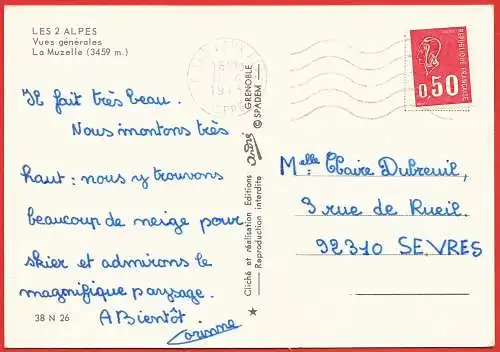 LES 2 ALPES
Vues générales
La Muzelle (3459 m.)
Il fait très beau.
Nous montons très
haut : nous y trouvons
beaucoup de neige pour
skier et admirons le
magonifique paysage.
A Bientôt
Corinne
38 N 26
Cliché et réalisation Editions
Reproduction interdite
GRENOBLE
© SPADEM
★
REPUBLIQUE FRANCAISE
0,50
Melle Claire Dubreuil,
9 rue de Rueil.
92310 SEVRES